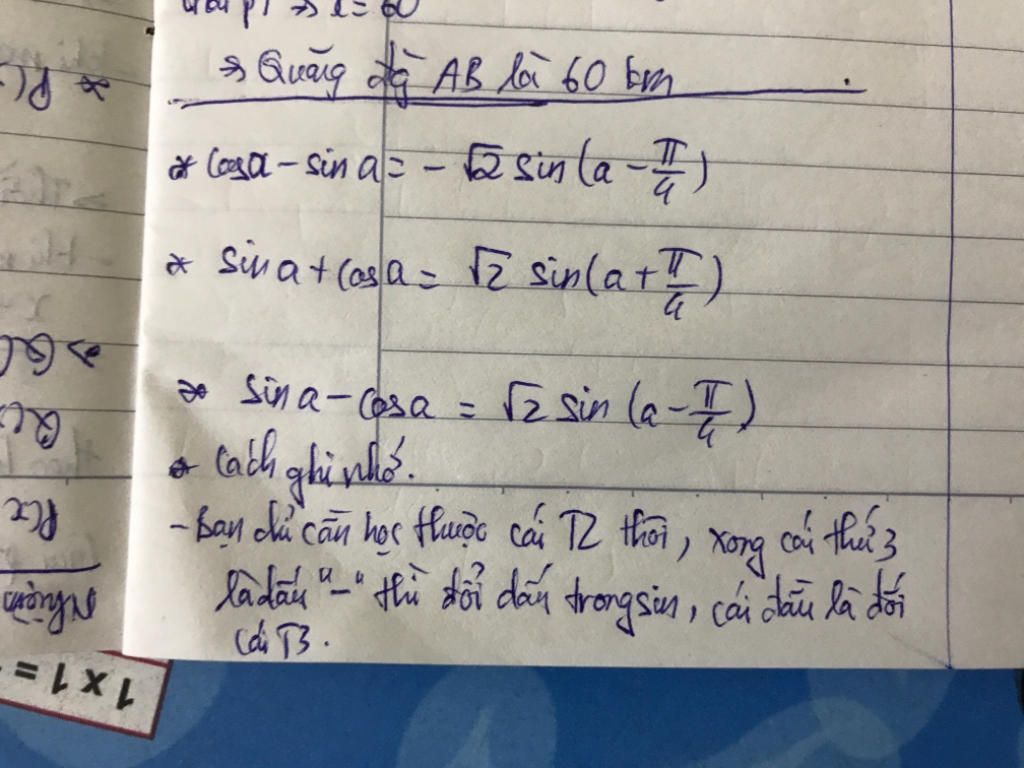 ⇒ x = 60
⇒ Quãng đg AB là 60 km
* cosa - sin a = - √2 sin(a - π/4)
* sin a + cosa = √2 sin(a + π/4)
* sin a - cosa = √2 sin (a - π/4)
* Cách ghi nhớ.
- Bạn chỉ cần học thuộc cái T2 thôi, xong cái thứ 3
là dấu "-" thì đổi dấu trong sin, cái đầu là đối
cái T3.
1 x 1 =